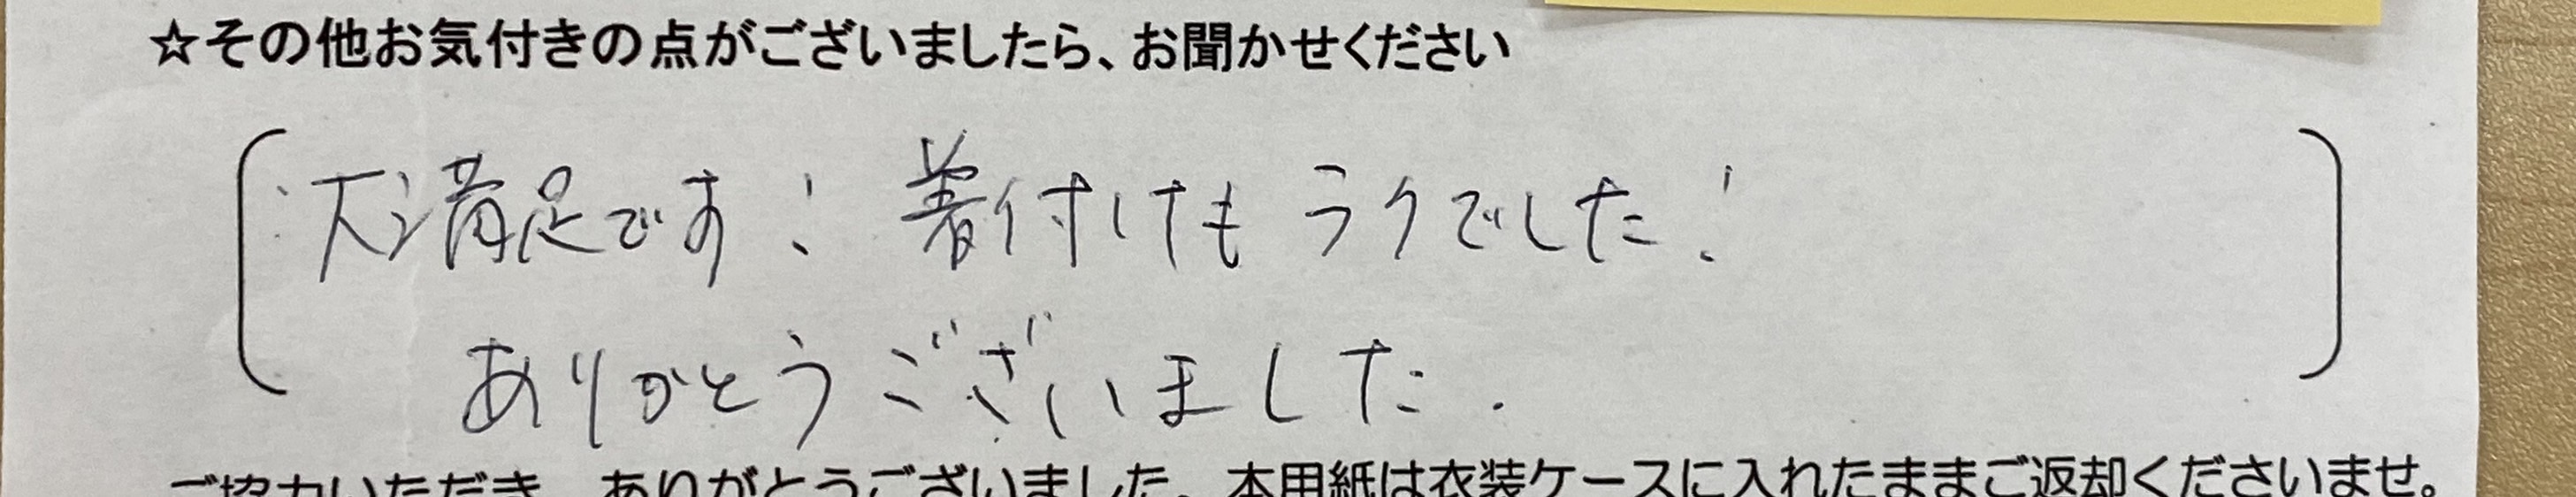 ☆その他お気付きの点がございましたら、お聞かせください
大満足です！ 着付けもラクでした！
ありがとうございました.
ご協力いただき、ありがとうございました。本用紙は衣装ケースに入れたままご返却くださいませ。